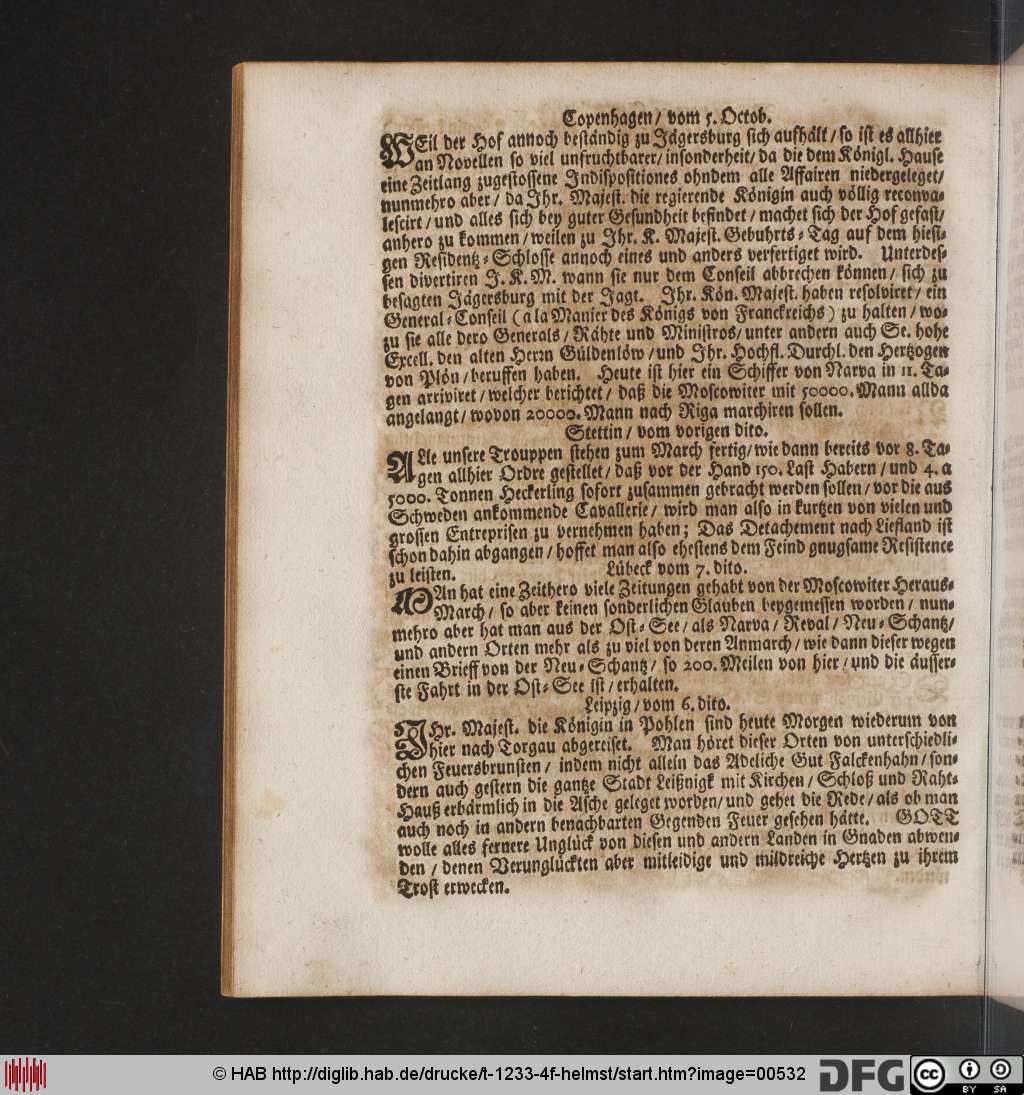 Copenhagen / vom 5. Octob.
WEil der Hof annoch beständig zu Jägersburg sich aufhält / so ist es allhier
an Novellen so viel unfruchtbarer / insonderheit / da die dem Königl. Hause
eine Zeitlang zugestossene Indispositiones ohndem alle Affairen niedergeleget /
nunmehro aber / da Ihr. Majest. die regierende Königin auch völlig reconva-
lescirt / und alles sich bey guter Gesundheit befindet / machet sich der Hof gefast /
anhero zu kommen / weilen zu Ihr. K. Majest. Gebuhrts-Tag auf dem hiesi-
gen Residentz-Schlosse annoch eines und anders verfertiget wird. Unterdes-
sen divertiren J. K. M. wann sie nur dem Conseil abbrechen können / sich zu
besagten Jägersburg mit der Jagt. Ihr. Kön. Majest. haben resolviret / ein
General-Conseil (a la Manier des Königs von Franckreichs) zu halten / wo-
zu sie alle dero Generals / Rähte und Ministros / unter andern auch Se. hohe
Excell. den alten Herrn Güldenlöw / und Ihr. Hochfl. Durchl. den Hertzogen
von Plön / beruffen haben. Heute ist hier ein Schiffer von Narva in 11. Ta-
gen arriviret / welcher berichtet / daß die Moscowiter mit 50000. Mann allda
angelangt / wovon 20000. Mann nach Riga marchiren sollen.
Stettin / vom vorigen dito.
ALle unsere Trouppen stehen zum March fertig / wie dann bereits vor 8. Ta-
gen allhier Ordre gestellet / daß vor der Hand 150. Last Habern / und 4. a
5000. Tonnen Heckerling sofort zusammen gebracht werden sollen / vor die aus
Schweden ankommende Cavallerie / wird man also in kurtzen von vielen und
grossen Entreprisen zu vernehmen haben; Das Detachement nach Liefland ist
schon dahin abgangen / hoffet man also ehestens dem Feind gnugsame Resistence
zu leisten. Lübeck vom 7. dito.
MAn hat eine Zeithero viele Zeitungen gehabt von der Moscowiter Heraus-
March / so aber keinen sonderlichen Glauben beygemessen worden / nun-
mehro aber hat man aus der Ost-See / als Narva / Reval / Neu-Schantz /
und andern Orten mehr als zu viel von deren Anmarch / wie dann dieser wegen
einen Brieff von der Neu-Schantz / so 200. Meilen von hier / und die äusser-
ste Fahrt in der Ost-See ist / erhalten.
Leipzig / vom 6. dito.
IHr. Majest. die Königin in Pohlen sind heute Morgen wiederum von
hier nach Torgau abgereiset. Man höret dieser Orten von unterschiedli-
chen Feuersbrunsten / indem nicht allein das Adeliche Gut Falckenhahn / son-
dern auch gestern die gantze Stadt Leißnigk mit Kirchen / Schloß und Raht-
Hauß erbärmlich in die Asche geleget worden / und gehet die Rede / als ob man
auch noch in andern benachbarten Gegenden Feuer gesehen hätte. GOTT
wolle alles fernere Unglück von diesen und andern Landen in Gnaden abwen-
den / denen Verunglückten aber mitleidige und mildreiche Hertzen zu ihrem
Trost erwecken.
© HAB http://diglib.hab.de/drucke/t-1233-4f-helmst/start.htm?image=00532
DFG
cc BY SA